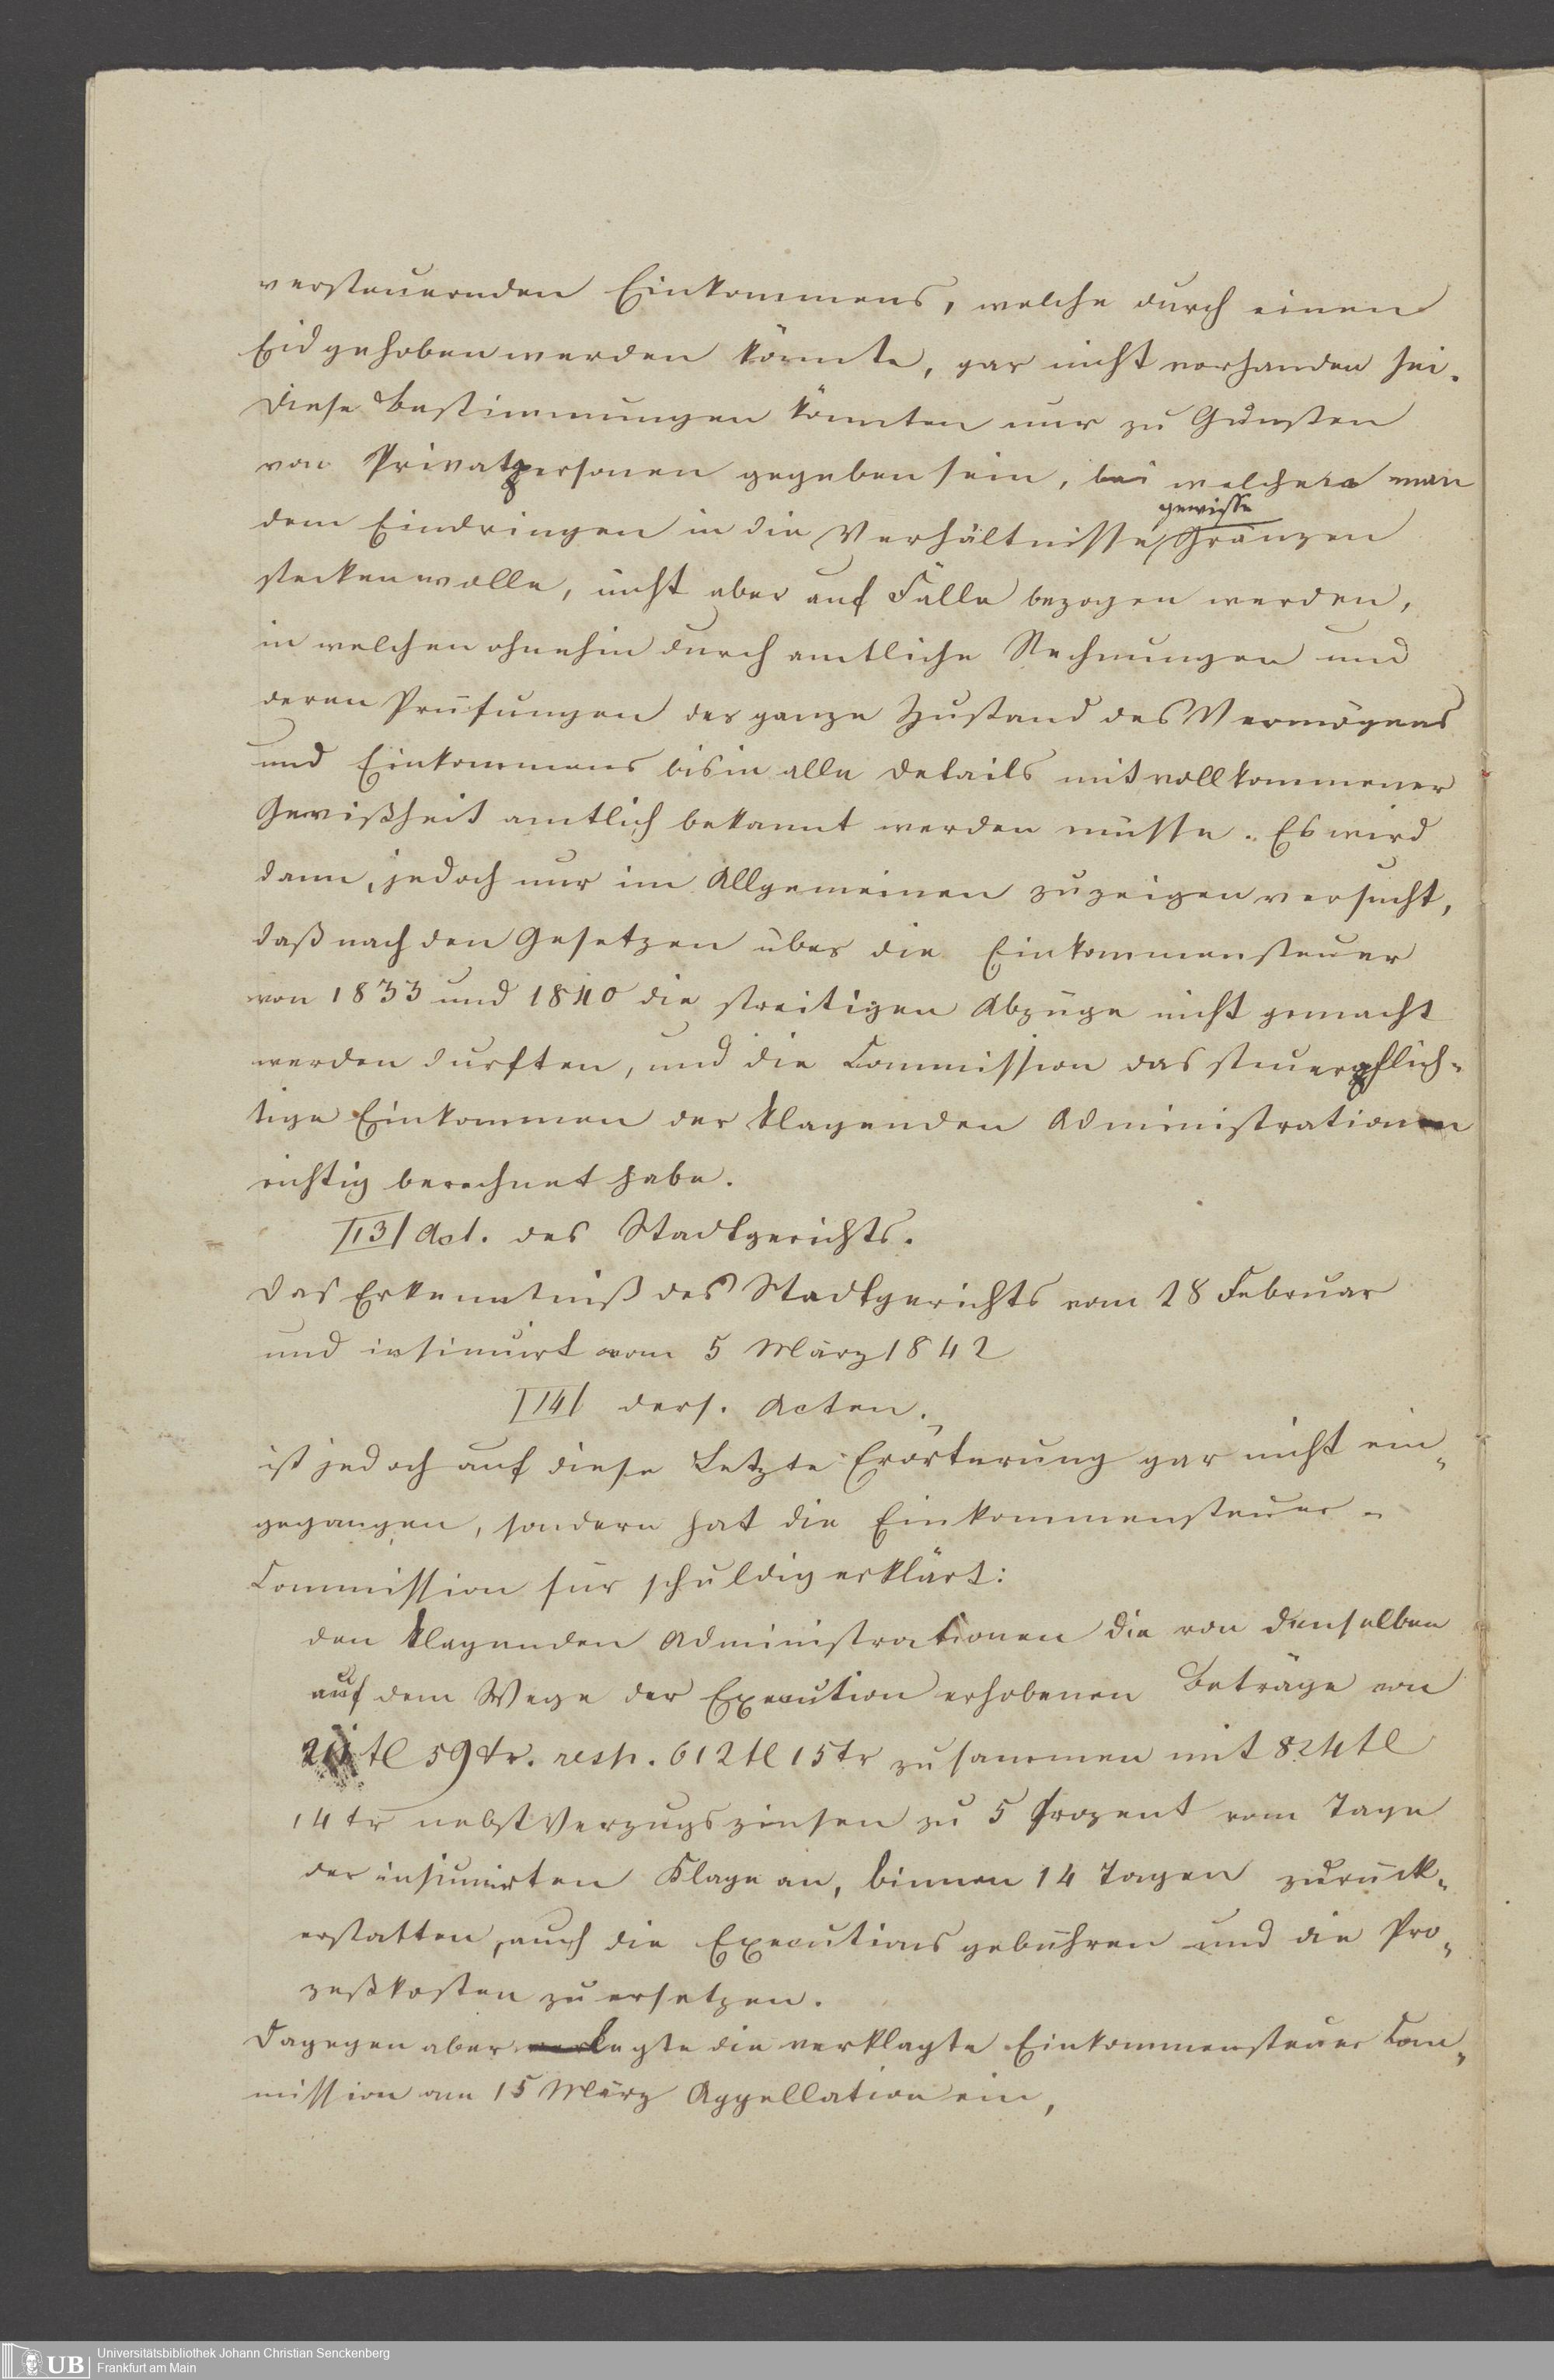 versteuernden Einkommens, welche durch einen
Eid gehoben werden könnte, gar nicht vorhanden sei.
Diese Bestimmungen könnten nur zu Gunsten
von Privatpersonen gegeben sein, bei welchen man
gewisse
dem Eindringen in die Verhältnisse Gränzen
stecken wolle, nicht aber auf Fälle bezogen werden,
in welchen ohnehin durch amtliche Rechnungen und
deren Prüfungen der ganze Zustand des Vermögens
und Einkommens bis in alle Details mit vollkommener
Gewißheit amtlich bekannt werden müsse. Es wird
dann, jedoch nur im Allgemeinen zu zeigen versucht,
daß nach den Gesetzen über die Einkommensteuer
von 1833 und 1840 die streitigen Abzüge nicht gemacht
werden durften, und die Commission das steuerpflich-
tige Einkommen der klagenden Administrationen
richtig berechnet habe.
[13] Act. des Stadtgerichts.
Das Erkenntniß des Stadtgerichts vom 28 Februar
und insinuirt vom 5 März 1842
[14] ders. Acten.
ist jedoch auf diese Letzte Erörterung gar nicht ein-
gegangen, sondern hat die Einkommensteuer-
Commission für schuldig erklärt:
den klagenden Administrationen die von denselben
auf dem Wege der Execution erhobenen Beträge von
211 fl 59 kr. resp. 612 fl 15 kr zusammen mit 824 fl
14 kr nebst Verzugszinsen zu 5 Prozent vom Tage
der insinuirten Klage an, binnen 14 Tagen zurück-
erstatten, auch die Executionsgebühren und die Pro-
zeßkosten zu ersetzen.
Dagegen aber legte die verklagte Einkommensteuer Com-
mission am 15 März Appellation ein,
Universitätsbibliothek Johann Christian Senckenberg
Frankfurt am Main
UB